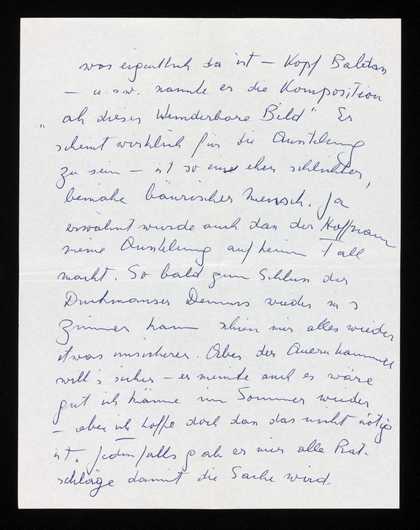 was eigentlich da ist – Kopf Balkan
– u.s.w. nannte er die Komposition
"ah dieses Wunderbare Bild" Er
scheint wirklich für die Ausstellung
zu sein – ist so ein eher schlichter,
beinahe bäurischer Mensch. Ja
erwähnt wurde auch dass der Hoffmann
meine Ausstellung auf keinen Fall
macht. So bald zum Schluss der
Demus wieder ins
Zimmer kam schien mir alles wieder
etwas unsicherer. Aber der Auernhammer
will's sicher – er meinte auch es wäre
gut ich käme im Sommer wieder
– aber ich hoffe doch dass das nicht nötig
ist. Jedenfalls gab er mir alle Rat-
schläge damit die Sache wird.